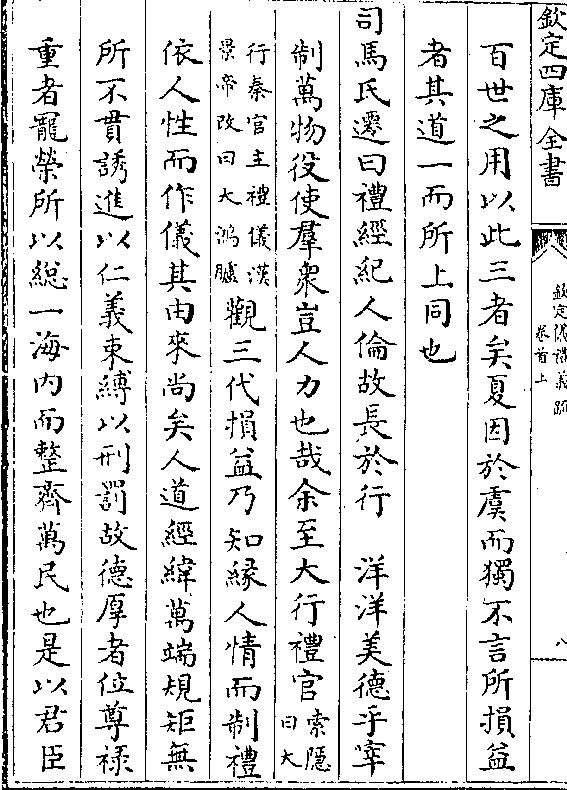 欽定四庫全書
欽定儀禮義疏
卷首上
八
百世之用以此三者矣夏因於虞而獨不言所損益
者其道一而所上同也
司馬氏遷曰禮經紀人倫故長於行　洋洋美德乎宰
制萬物役使羣衆豈人力也哉余至大行禮官索隱曰大
行秦官主禮儀漢景帝改曰大鴻臚觀三代損益乃知緣人情而制禮
依人性而作儀其由來尚矣人道經緯萬端規矩無
所不貫誘進以仁義束縛以刑罰故德厚者位尊祿
重者寵榮所以總一海内而整齊萬民也是以君臣